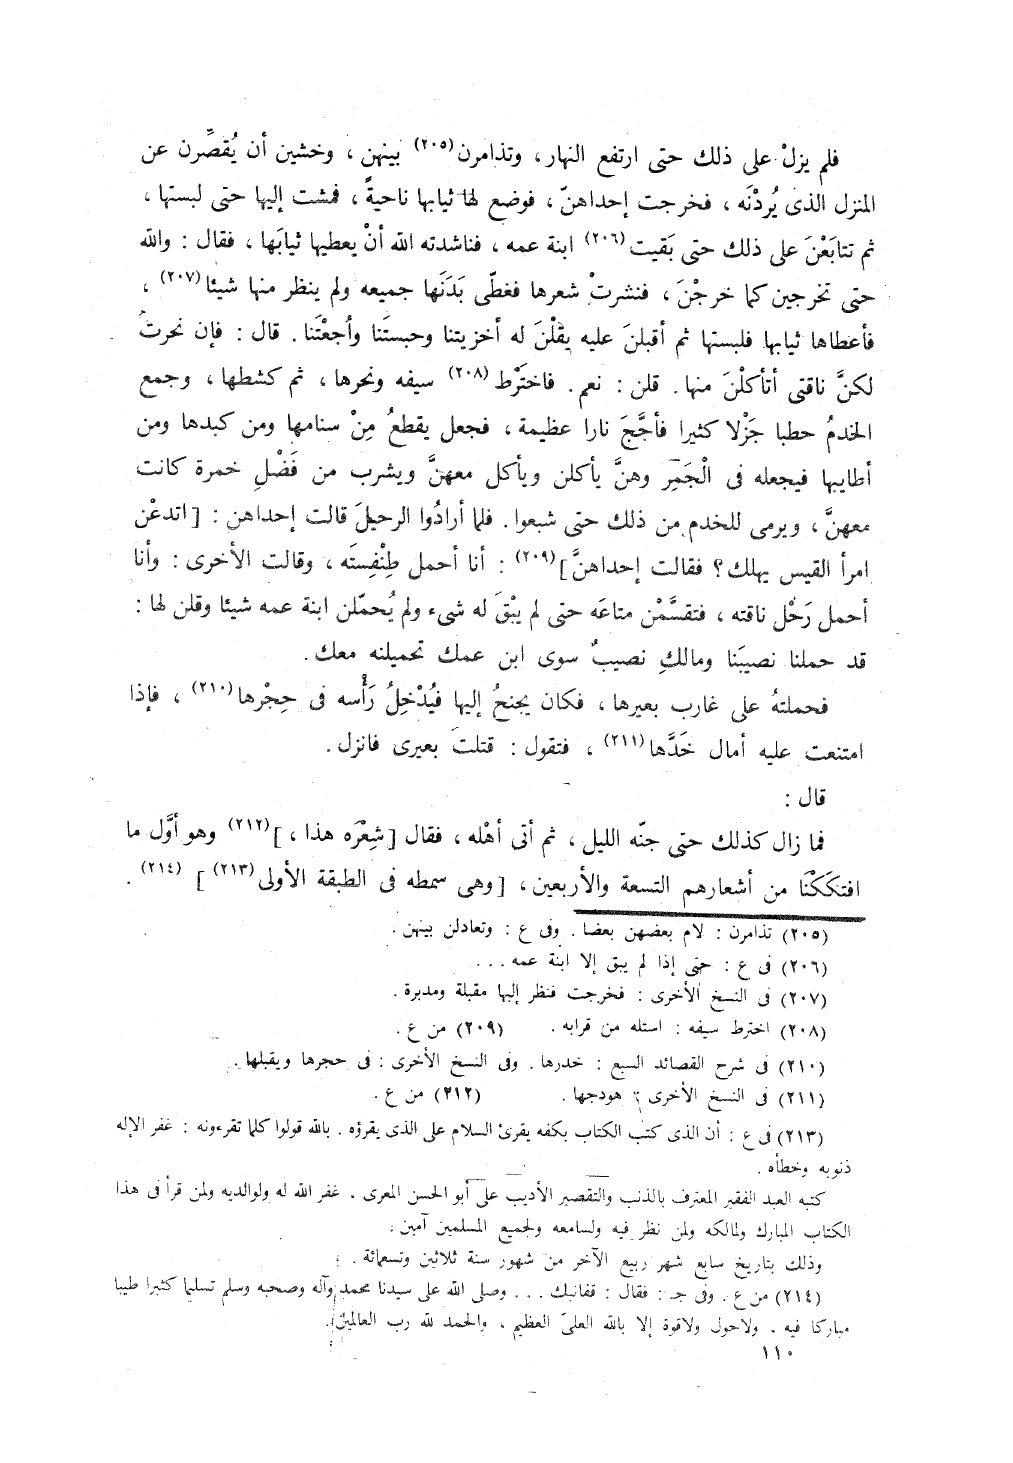 فلم يزلْ على ذلك حتى ارتفع النهار ، وتذامرن(٢٠٥) بينهن ، وخشين أن يُقصِّرن عن
المنزل الذى يُردْنَه ، فخرجت إحداهنّ ، فوضع لها ثيابها ناحيةً ، فمشت إليها حتى لبستها ،
ثم تتابَعْنَ على ذلك حتى بَقيت(٢٠٦) ابنة عمه ، فناشدته الله أنْ يعطيها ثيابَها ، فقال : والله
حتى تخرجين كما خرجْنَ ، فنشرتْ شعرها فغطّى بَدَنَها جميعه ولم ينظر منها شيئا(٢٠٧) ،
فأعطاها ثيابها فلبستها ثم أقبلنَ عليه يقلْنَ له أخزيتنا وحبستَنا وأجعْتَنا . قال : فإن نحرتُ
لكنَّ ناقتى أتأكلْنَ منها . قلن : نعم . فاختَرْط(٢٠٨) سيفه ونحرها ، ثم كشطها ، وجمع
الخدمُ حطبا جَزْلا كثيرا فأجَّجَ نارا عظيمة ، فجعل يقطعُ مِنْ سنامها ومن كبدها ومن
أطايبها فيجعله فى الْجَمِر وهنَّ يأكلن ويأكل معهنَّ ويشرب من فَضْلِ خمرة كانت
معهنَّ ، ويرمى للخدم من ذلك حتى شبعوا . فلما أرادُوا الرحيلَ قالت إحداهن : [ اتدعْن
امرأ القيس يهلك ؟ فقالت إحداهنَّ ](٢٠٩) : أنا أحمل طِنْفِستَه ، وقالت الأخرى : وأنا
أحمل رَحْل ناقته ، فتقسَّمْن متاعَه حتى لم يبْقَ له شىء ولم يُحمّلن ابنة عمه شيئا وقلن لها :
قد حملنا نصيبَنا ومالكِ نصيبٌ سوى ابن عمك تحميلنه معك .
فحملتهُ على غارب بعيرها ، فكان يجنحُ إليها فيُدْخِلُ رَأْسه فى حِجْرها(٢١٠) ، فإذا
امتنعت عليه أمال خَدَّها(٢١١) ، فتقول : قتلتَ بعيرى فانزل .
قال :
فما زال كذلك حتى جنّه الليل ، ثم أتى أهْله ، فقال [ شِعْرَه هذا ، ](٢١٢) وهو أوَّل ما
افتكَكْنَا من أشعارهم التسعة والأربعين ، [ وهى سمطه فى الطبقة الأولى(٢١٣) ] (٢١٤) .
(٢٠٥) تذامرن : لام بعضهن بعضا . وفى ع : وتعادلن بينهن .
(٢٠٦) فى ع : حتى إذا لم يبق إلا ابنة عمه . . .
(٢٠٧) فى النسخ الأخرى : فخرجت فنظر إليها مقبلة ومدبرة .
(٢٠٨) اخترط سيفه : استله من قرابه . (٢٠٩) من ع .
(٢١٠) فى شرح القصائد السبع : خدرها . وفى النسخ الأخرى : فى حجرها ويقبلها .
(٢١١) فى النسخ الأخرى : هودجها . (٢١٢) من ع .
(٢١٣) فى ع : أن الذى كتب الكتاب بكفه يقرئ السلام على الذى يقرؤه . بالله قولوا كلما تقرءونه : غفر الإله
ذنوبه وخطأه .
كتبه العبد الفقير المعترف بالذنب والتقصير الأديب على أبو الحسن المعرى . غفر الله له ولوالديه ولمن قرأ فى هذا
الكتاب المبارك ولمالكه ولمن نظر فيه ولسامعه ولجميع المسلمين آمين .
وذلك بتاريخ سابع شهر ربيع الآخر من شهور سنة ثلاثين وتسعمائة .
(٢١٤) من ع . وفى جـ : فقال : قفانبك . . . وصلى الله على سيدنا محمد وآله وصحبه وسلم تسليما كثيرا طيبا
مباركا فيه . ولاحول ولاقوة إلا بالله العلىّ العظيم ، والحمد لله رب العالمين .
١١٠